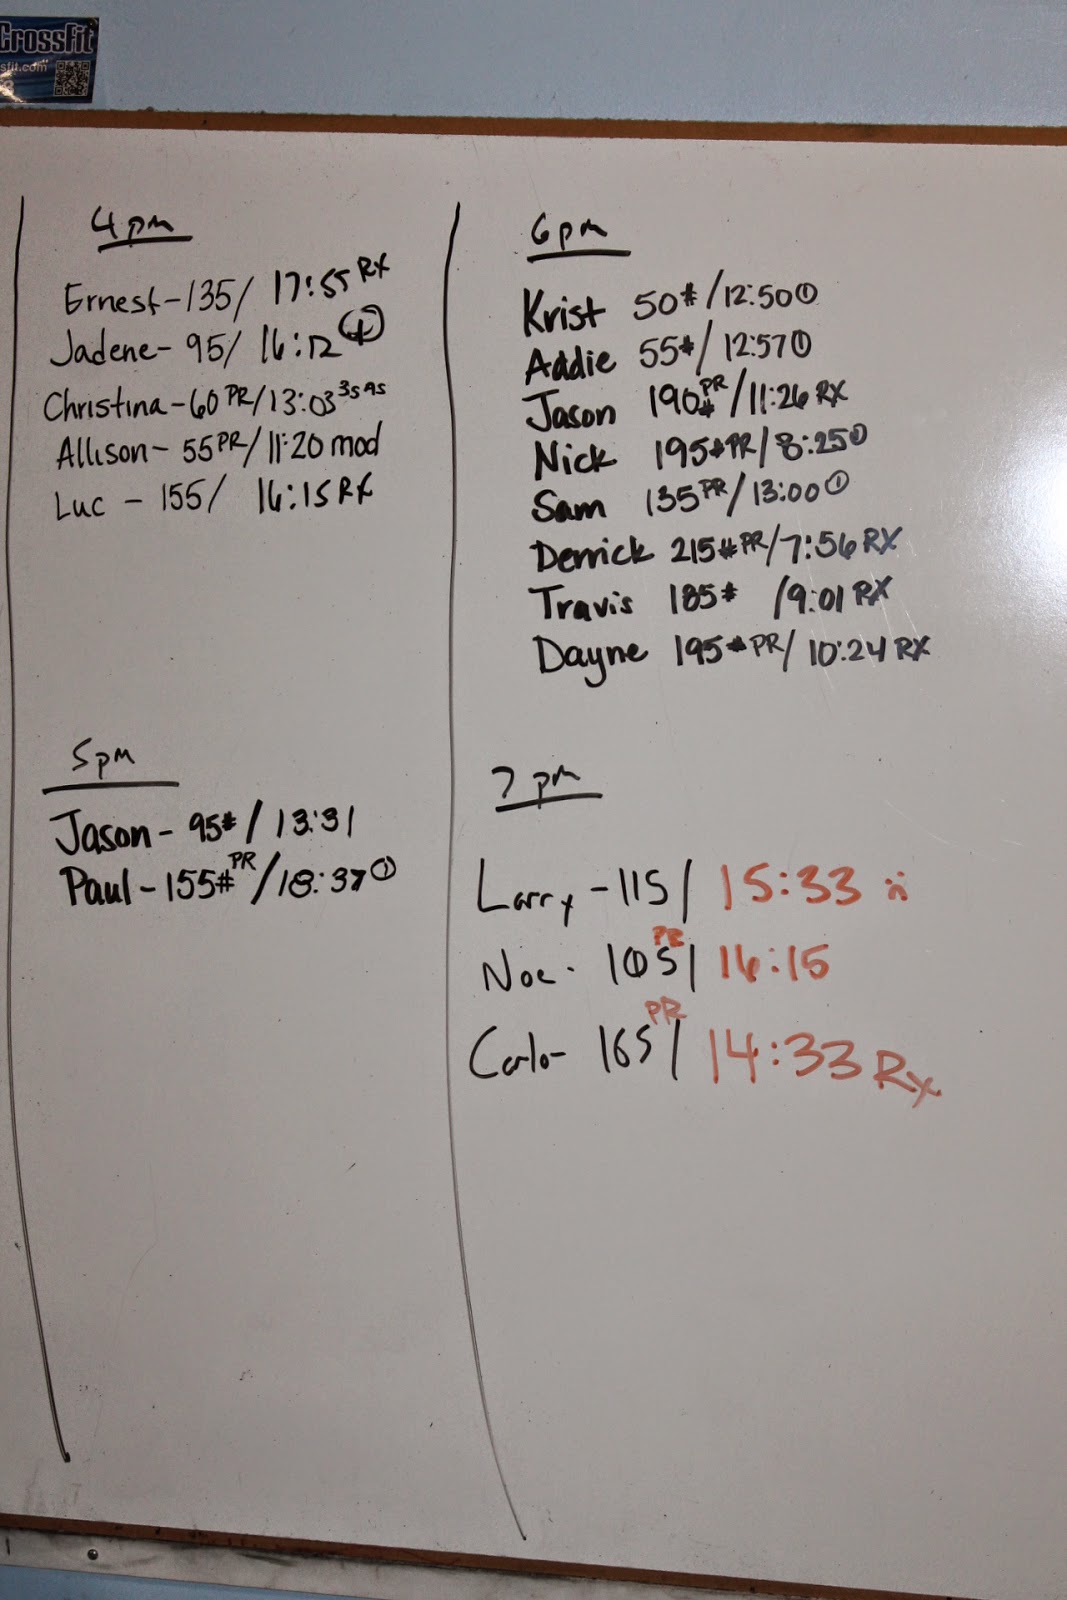 CrossFit
sfit.com
4pm
Ernest-135/ 17:55 RX
Jadene- 95/ 16:12
Christina-60 PR/13:03
Allison- 55 PR/11:20 mod
Luc - 155/ 16:15 RX
5pm
Jason- 95#/ 13:31
Paul-155# PR/18:37 ①
6pm
Krist 50#/12:50 ①
Addie 55#/12:57 ①
Jason 190# PR/11:26 RX
Nick 195# PR/8:25 ①
Sam 135 PR/13:00 ①
Derrick 215# PR/7:56 RX
Travis 185# /9:01 RX
Dayne 195# PR/ 10:24 RX
7pm
Larry -115/ 15:33 :(
Noe- 105 PR/ 16:15
Carlo- 165 PR/ 14:33 Rx